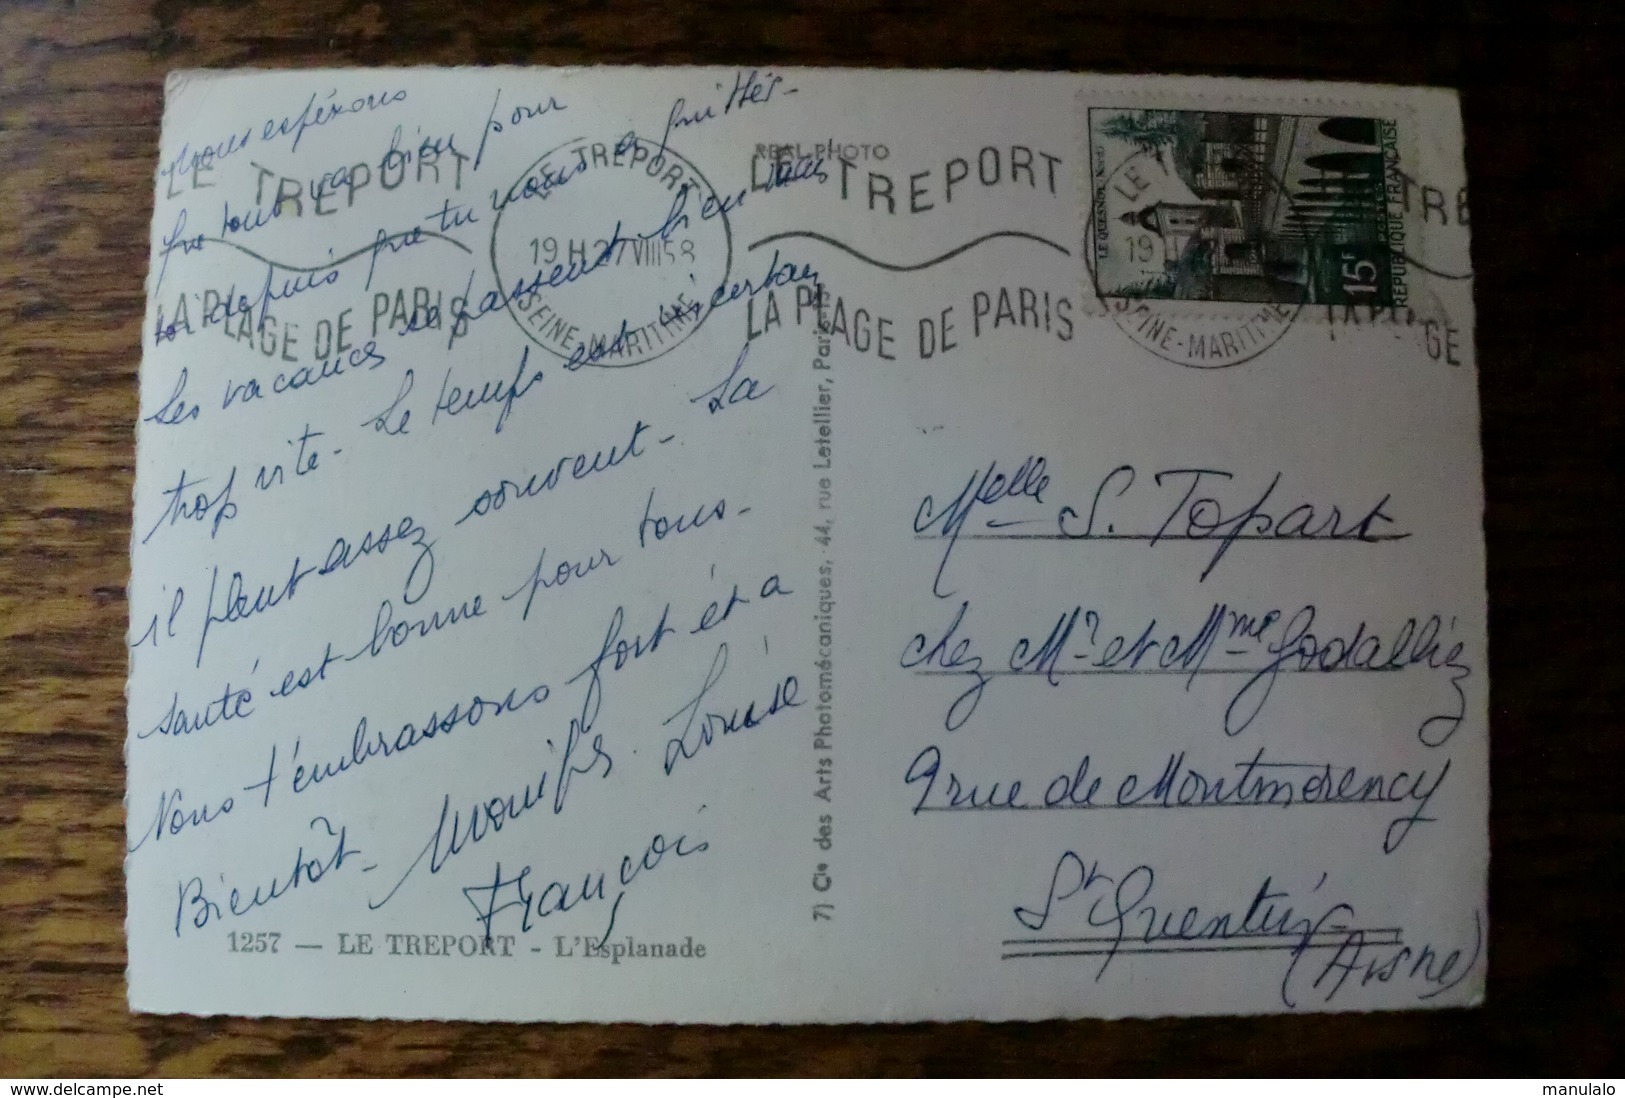 nous espérons
que tout va bien pour
toi depuis que tu nous a quittés -
Les vacances se passent bien mais
trop vite - Le temps est incertain
il pleut assez souvent - La
santé est bonne pour tous -
Nous t'embrassons fort et a
Bientôt - Louise
François
1257 — LE TREPORT - L'Esplanade
7) Cie des Arts Photomécaniques, 44, rue Letellier, Paris-15
REAL PHOTO
LE TREPORT
LA PLAGE DE PARIS
LE TREPORT
19 H 27 VIII 58
SEINE-MARITIME
LE TREPORT
LA PLAGE DE PARIS
LE T
19 H 27
SEINE-MARITIME
LE QUESNOY (Nord)
15F
POSTES
RÉPUBLIQUE FRANÇAISE
TRE
LA PLAGE
Melle S. Topart
chez Mr et Mme Godalliez
9 rue de Montmorency
St Quentin
(Aisne)
delcampe.net
manulalo